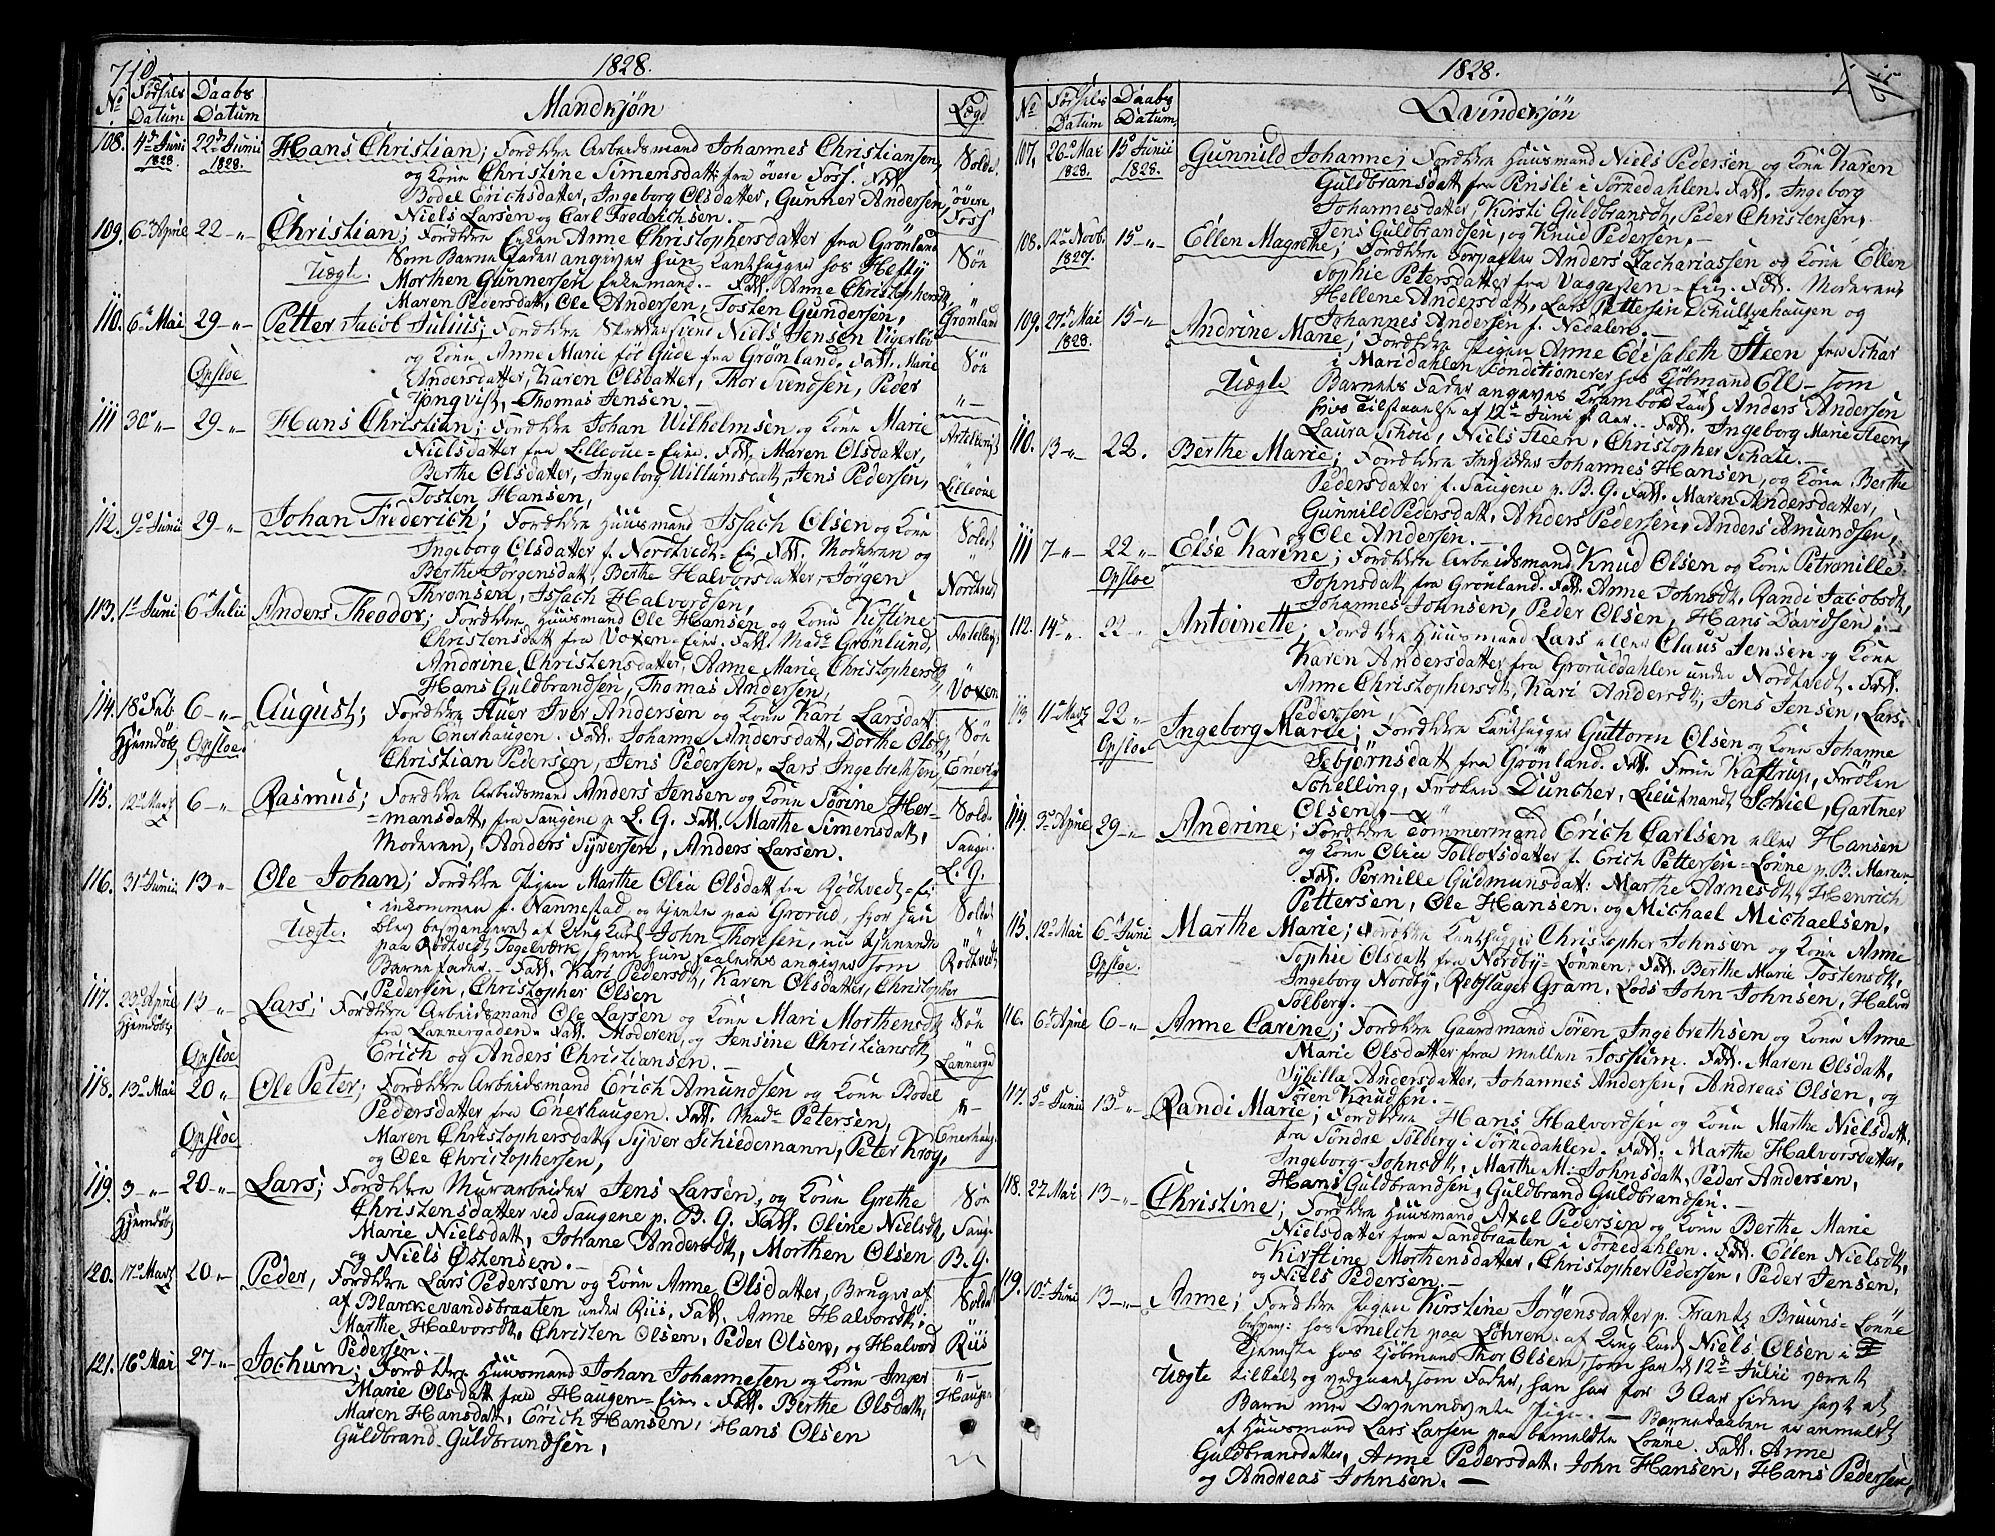 710
1828.
No Fødsels Datum Daabs Datum Mandkjøn Lægd
108. 4de Juni 1828. 22de Junii 1828. Hans Christian; Forældre Arbeidsmand Johannes Christiansen, Soldat.
og Kone Christine Simensdatt fra øvere Foss. Fadd.
Bodel Erichsdatter, Ingeborg Olsdatter, Gunner Andersen, øvere
Niels Larsen og Carl Frederichsen. Foss
109. 6te Aprie 22 -"- Christian; Forældre Enken Anne Christophersdatter fra Grønland
Som Barne Fader angiver hun Kanthugger hos Hefty Søn
Uægte. Morthen Gunnersen Enkemand. - Fadd. Anne Christophersdt,
Maren Pedersdatt, Ole Andersen, Tosten Gundersen, "
110. 6te Mai 29 -"- Petter Jacob Julius; Forældre Niels Jensen Vigerløv Grønland
og Kone Anne Marie fød Gude fra Grønland. Fadd. Marie
Opsloe Andersdatter, Karen Olsdatter, Thor Svendsen, Peder Søn
Yönqvist, Thomas Jensen. - "-
111 30te "- 29 -"- Hans Christian; Forældre Johan Wilhelmsen og Kone Marie
Nielsdatter fra Lilleoue-Eie. Fadd. Maren Olsdatter, Artellerist
Berthe Olsdatter, Ingeborg Willumsdatt, Jens Pedersen, "
Tosten Hansen, Lilleoue
112. 9de Junii 29 -"- Johan Frederich; Forældre Huusmand Issach Olsen og Kone Soldat
Ingeborg Olsdatter f. Nordtvedt-Eie Fadd. Moderen og "
Berthe Jørgensdatt, Berthe Halvorsdatter, Jørgen
Thronsen, Issach Halvordsen, Nordtvedt
113. 1te Juni 6te Julii Anders Theodor; Forældre Huusmand Ole Hansen og Kone Kistine
Christensdatt fra Voxen-Eie. Fadd. Made Grønlund, Artellerist
Andrine Christensdatter, Anne Marie Christophersdt, "
Hans Guldbrandsen, Thomas Andersen, Voxen
114. 18de Feb 6 -"- August; Forældre Huer Iver Andersen og Kone Kari Larsdatt
Hjemdöbt Opsloe. fra Enerhaugen. Fadd. Johanne Andersdatt, Dorthe Olsdt, Søn
Christian Pedersen, Jens Pedersen, Lars Ingebrethsen, Enerhg
115. 12te Marz 6 -"- Rasmus; Forældre Arbeidsmand Anders Jensen og Kone Sørine Her- Sold.
=mansdatt, fra Saugene p. L. G. Fadd. Marthe Simensdatt,
Moderen, Anders Syversen, Anders Larsen. Saugen.
116. 31te Junii 13 "- Ole Johan; Forældre Pigen Marthe Olia Olsdatt fra Rødtvedt-Eie L. G.
inkommen f. Nannestad, og tjente paa Grorud, hvor hun Soldat
Uægte. blev besvangeret af Ung Karl John Thoresen, nu tjenende "
paa Rødtvedt Teglværk, hvem hun saaledes angives som
Barne fader. - Fadd. Kari Pedersdt, Karen Olsdatter, Christopher Rødtvedt
Pedersen, Christopher Olsen
117. 23de Aprie 13 "- Lars; Forældre Arbeidsmand Ole Larsen og Kone Mari Morthensdt
Hjemdöbt fra Lannergaden. Fadd. Moderen, og Jensine Christiansdt, Søn
Opsloe Erich og Anders Christiansen. - Lannergad
118. 13de Mai 20 "- Ole Peter; Forældre Arbeidsmand Erich Amundsen og Kone Bodel
Pedersdatter fra Enerhaugen. Fadd. Made Petersen, "-
Opsloe Maren Christophersdatt, Syver Schiedemann, Peter Krog, Enerhaug.
og Ole Christophersen,
119. 3 -"- 20 -"- Lars; Forældre Murarbeider Jens Larsen, og Kone Grethe Søn
Hjemdöbt Christensdatter ved Saugene p. B. G. Fadd. Oline Nielsdt,
Marie Nielsdatt, Johane Andersdt, Morthen Olsen Sauge
og Niels Østensen. - B. G.
120. 17de Martz 20 "- Peder, Forældre Lars Pedersen og Kone Anne Olsdatter, Bruger af
af Blankevandsbraaten under Riis. Fadd. Anne Halvorsdt, Soldat
Marthe Halvorsdt, Christen Olsen, Peder Olsen, og Halvord "
Pedersen. - Riis
121. 16de Mai 27 -"- Jochum; Forældre Huusmand Johan Johannesen og Kone Inger "-
Marie Olsdatt fra Haugen-Eie. Fadd. Berthe Olsdatt, Haugen
Maren Hansdatt, Erich Hansen, Hans Olsen
Guldbrand Guldbrandsen,
1828.
No Fødsels Datum Daabs Datum, Qvindekjøn
107, 26de Mai 1828. 15de Junii 1828. Gunnild Johanne; Forældre Huusmand Niels Pedersen og Kone Karen
Guldbransdatt fra Pinsli i Sørkedahlen. Fadd. Ingeborg
Johannesdatter, Kirsti Guldbransdt, Peder Christensen,
Jens Guldbrandsen, og Knud Pedersen. -
108. 12te Novb. 1827. 15de -"- Ellen Magrethe; Forældre Forpagter Anders Zachariassen og Kone Ellen
Sophie Petersdatter fra Vaggesten-Eie. Fadd. Moderen
Hellene Andersdatt, Lars Pettersen Schultzehaugen og
Johannes Andersen f. Nedalen. -
109. 27de Mai 1828. 15 -"- Andrine Marie; Forældre Pigen Anne Elisabeth Steen fra Skar
i Maridahlen, Conditionerer hos Kjöbmand Ell- som
Uægte Barnets Fader angives Krambod Karl Anders Andersen
hvis Tilstaaelse af 12te Juni d. Aar. - Fadd. Ingeborg Marie Steen,
Laura Schöie, Niels Steen, Christopher Schaie. -
110. 13 -"- 22. Berthe Marie; Forældre Johannes Hansen, og Kone Berthe
Pedersdatter f. Saugene p. B. G. Fadd. Maren Andersdatter,
Gunnild Pedersdatt, Anders Pedersen, Anders Amundsen,
og Ole Andersen. -
111 7 -"- 22 "- Else Karine; Forældre Arbeidsmand Knud Olsen og Kone Petronille
Opsloe Johnsdatt fra Grønland. Fadd. Anne Johnsdt, Randi Jacobsdt,
Johannes Johnsen, Peder Olsen, Hans Davidsen. -
112. 14de "- 22 "- Antoinette; Forældre Huusmand Lars eller Claus Jensen og Kone
Karen Andersdatter fra Groruddahlen under Nordtvedt. Fadd.
Anne Christophersdt, Kari Andersdt, Jens Jensen, Lars
Pedersen,
113 11te Martz 22 "- Ingeborg Marie; Forældre Kanthugger Guttoren Olsen og Kone Johanne
Opsloe Sebjørnsdatt fra Grönland. Fadd. Frue Kaftrup, Frøken
Schelling, Frøken Duncher, Lieutnandt Schiel, Gartner
Olsen, -
114. 3de Aprie 29 "- Andrine; Forældre Tömmermand Erich Carlsen eller Hansen
og Kone Olia Tollofsdatter f. Erich Pettersen-Lønne p. B. Marken
Fadd. Pernille Gudmunsdatt. Marthe Arnesdt, Henrich
Pettersen, Ole Hansen. og Michael Michaelsen.
115. 12te Mai 6te Junii Marthe Marie; Forældre Kanthugger Christopher Johnsen og Kone Anne
Opsloe. Sophie Olsdatt fra Nordby-Lønnen. Fadd. Berthe Marie Tostensdt,
Ingeborg Nordby, Rebslager Gram, Lods John Johnsen, Halvod
Solberg. -
116. 6te Aprie 6 -"- Anne Carine; Forældre Gaardmand Søren Ingebrethsen og Kone Anne
Marie Olsdatter fra mellen Fossum. Fadd. Maren Olsdatt,
Sybilla Andersdatter, Johannes Andersen, Andreas Olsen, og
Søren Knudsen. -
117. 5te Junii 13de "- Randi Marie; Forældre Hans Halvordsen og Kone Marthe Nielsdatt.
fra Söndre Solberg i Sørkedahlen. Fadd. Marthe Halvorsdatter,
Ingeborg Johnsdt, Marthe M. Johnsdatt, Peder Andersen,
Hans Guldbrandsen, Guldbrand Guldbrandsen. -
118. 27 Mai 13 -"- Christine; Forældre Huusmand Axel Pedersen og Kone Berthe Marie
Nielsdatter fra Sandbraaten i Sørkedahlen. Fadd. Ellen Nielsdt,
Kirstine Morthensdatter, Christopher Pedersen, Peder Jensen,
og Niels Pedersen. -
119. 10de Junii 13 -"- Anne; Forældre Pigen Kirstine Jørgensdatter p. Frantz Bruuns-Lønne
besvang: hos Smelch paa Löhren. af Ung Karl Niels Olsen i
Tjeneste hos Kjöbmand Thor Olsen, som har d 12te Julii været
Uægte tilkalt og vedgaaet som Fader, han har for 3 Aar siden havt et
Barn med Ovennævnte Pige. - Barnedaaben er anmeldt
af Huusmand Lars Larsen paa bemeldte Lønne. Fadd. Anne
Guldbransdatter, Anne Pedersdatt. John Hansen, Hans Pedersen,
og Andreas Johnsen. -